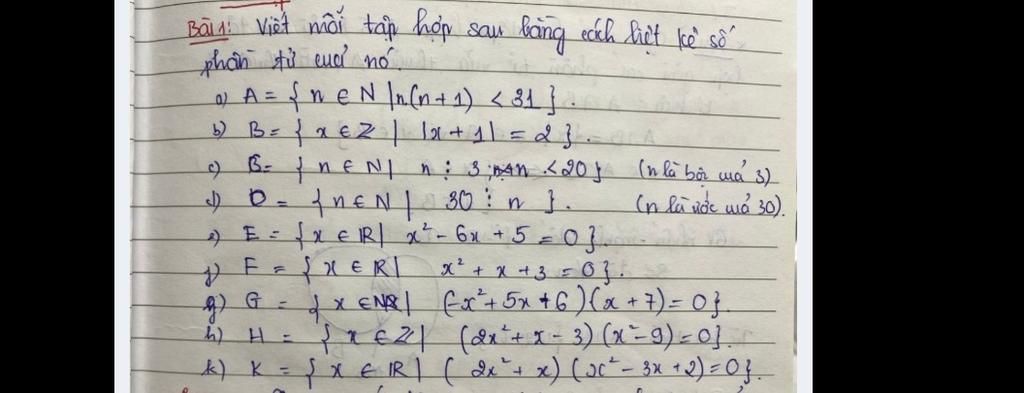 Bài 1: Viết mỗi tập hợp sau bằng cách liệt kê số
phần tử cuả nó.
a) A = { n ∈ N | n(n+1) < 31 }.
b) B = { x ∈ Z | |x+1| = 2 }.
c) B = { n ∈ N | n ⋮ 3; n < 20 } (n là bội cuả 3)
d) D = { n ∈ N | 30 ⋮ n }. (n là ước cuả 30).
e) E = { x ∈ R | x² - 6x + 5 = 0 }
f) F = { x ∈ R | x² + x + 3 = 0 }.
g) G = { x ∈ N | (-x² + 5x + 6)(x + 7) = 0 }.
h) H = { x ∈ Z | (2x² + x - 3)(x² - 9) = 0 }.
k) K = { x ∈ R | (2x² + x)(x² - 3x + 2) = 0 }.